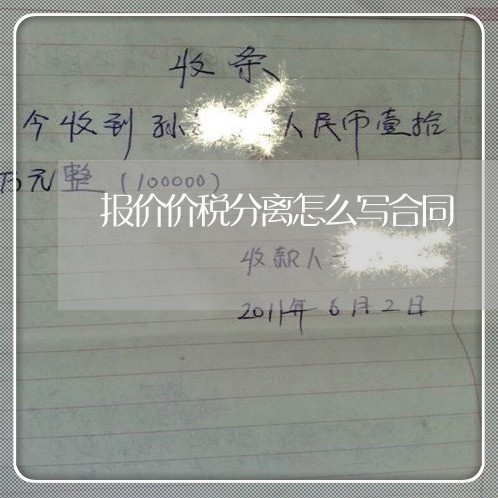 收条
今收到孙 人民币壹拾
万元整（100000）
报价价税分离怎么写合同
收款人
2011年6月2日